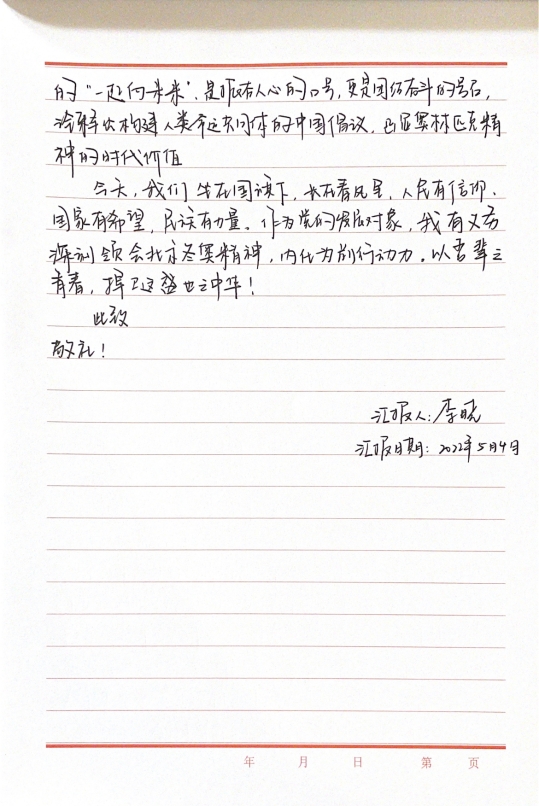 的“一起向未来”，是呼唤人心的口号，更是团结奋斗的号召，
诠释出构建人类命运共同体的中国倡议，凸显奥林匹克精
神的时代价值
今天，我们生在国旗下，长在春风里，人民有信仰，
国家有希望，民族有力量。作为党的发展对象，我有义务
深刻领会北京冬奥精神，内化为前行动力。以吾辈之
青春，捍卫这盛世之中华！
此致
敬礼！
汇报人：李晓
汇报日期：2022年5月4日
年 月 日 第 页